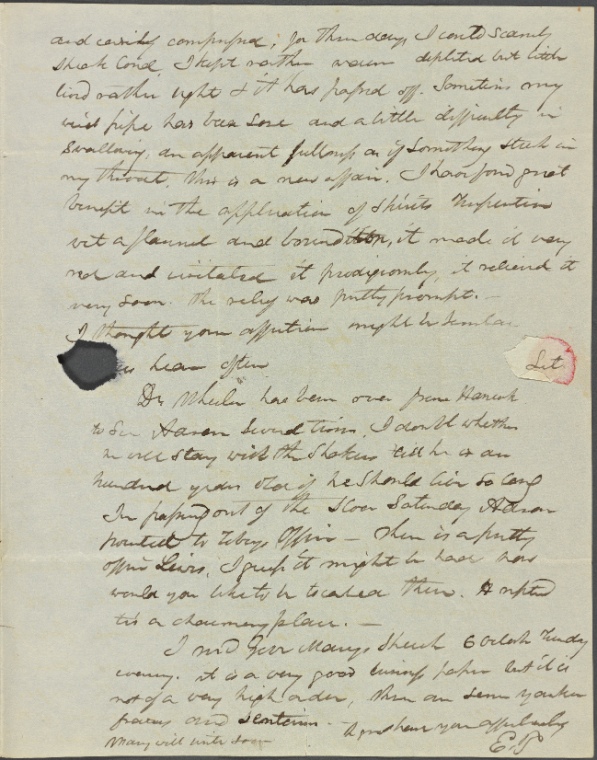 and easily compressed, for three days I could scarcely
speak loud. I kept rather warm depleted but little
lived rather light & it has passed off. Sometimes my
wind pipe has been sore and a little difficulty in
swallowing, an apparent fullness as if something stuck in
my throat. This is a new affair. I have found great
benefit in the application of spirits Turpentine
wet a flannel and bound it on, it made it very
red and irritated it prodigiously, it relieved it
very soon. The relief was pretty prompt. —
I thought your affection might be similar
us hear often
Let
Dr. Wheeler has been over from Hancock
to see Aaron several times. I doubt whether
he will stay with the Shakers till he is an
hundred years old if he should live so long
In passing out of the Door Saturday Aaron
pointed to Tobeys Office — there is a pretty
office Lewis, I guess it might be had how
would you like to be located there. A
tis a charming place. —
I red Govr Marcys Speech 6 oclock Tuesday
evening. it is a very good business paper but it is
not of a very high order, there are some yankee
phrases and sentences. —
Mary will write soon
Again hear you affectionately
E. P